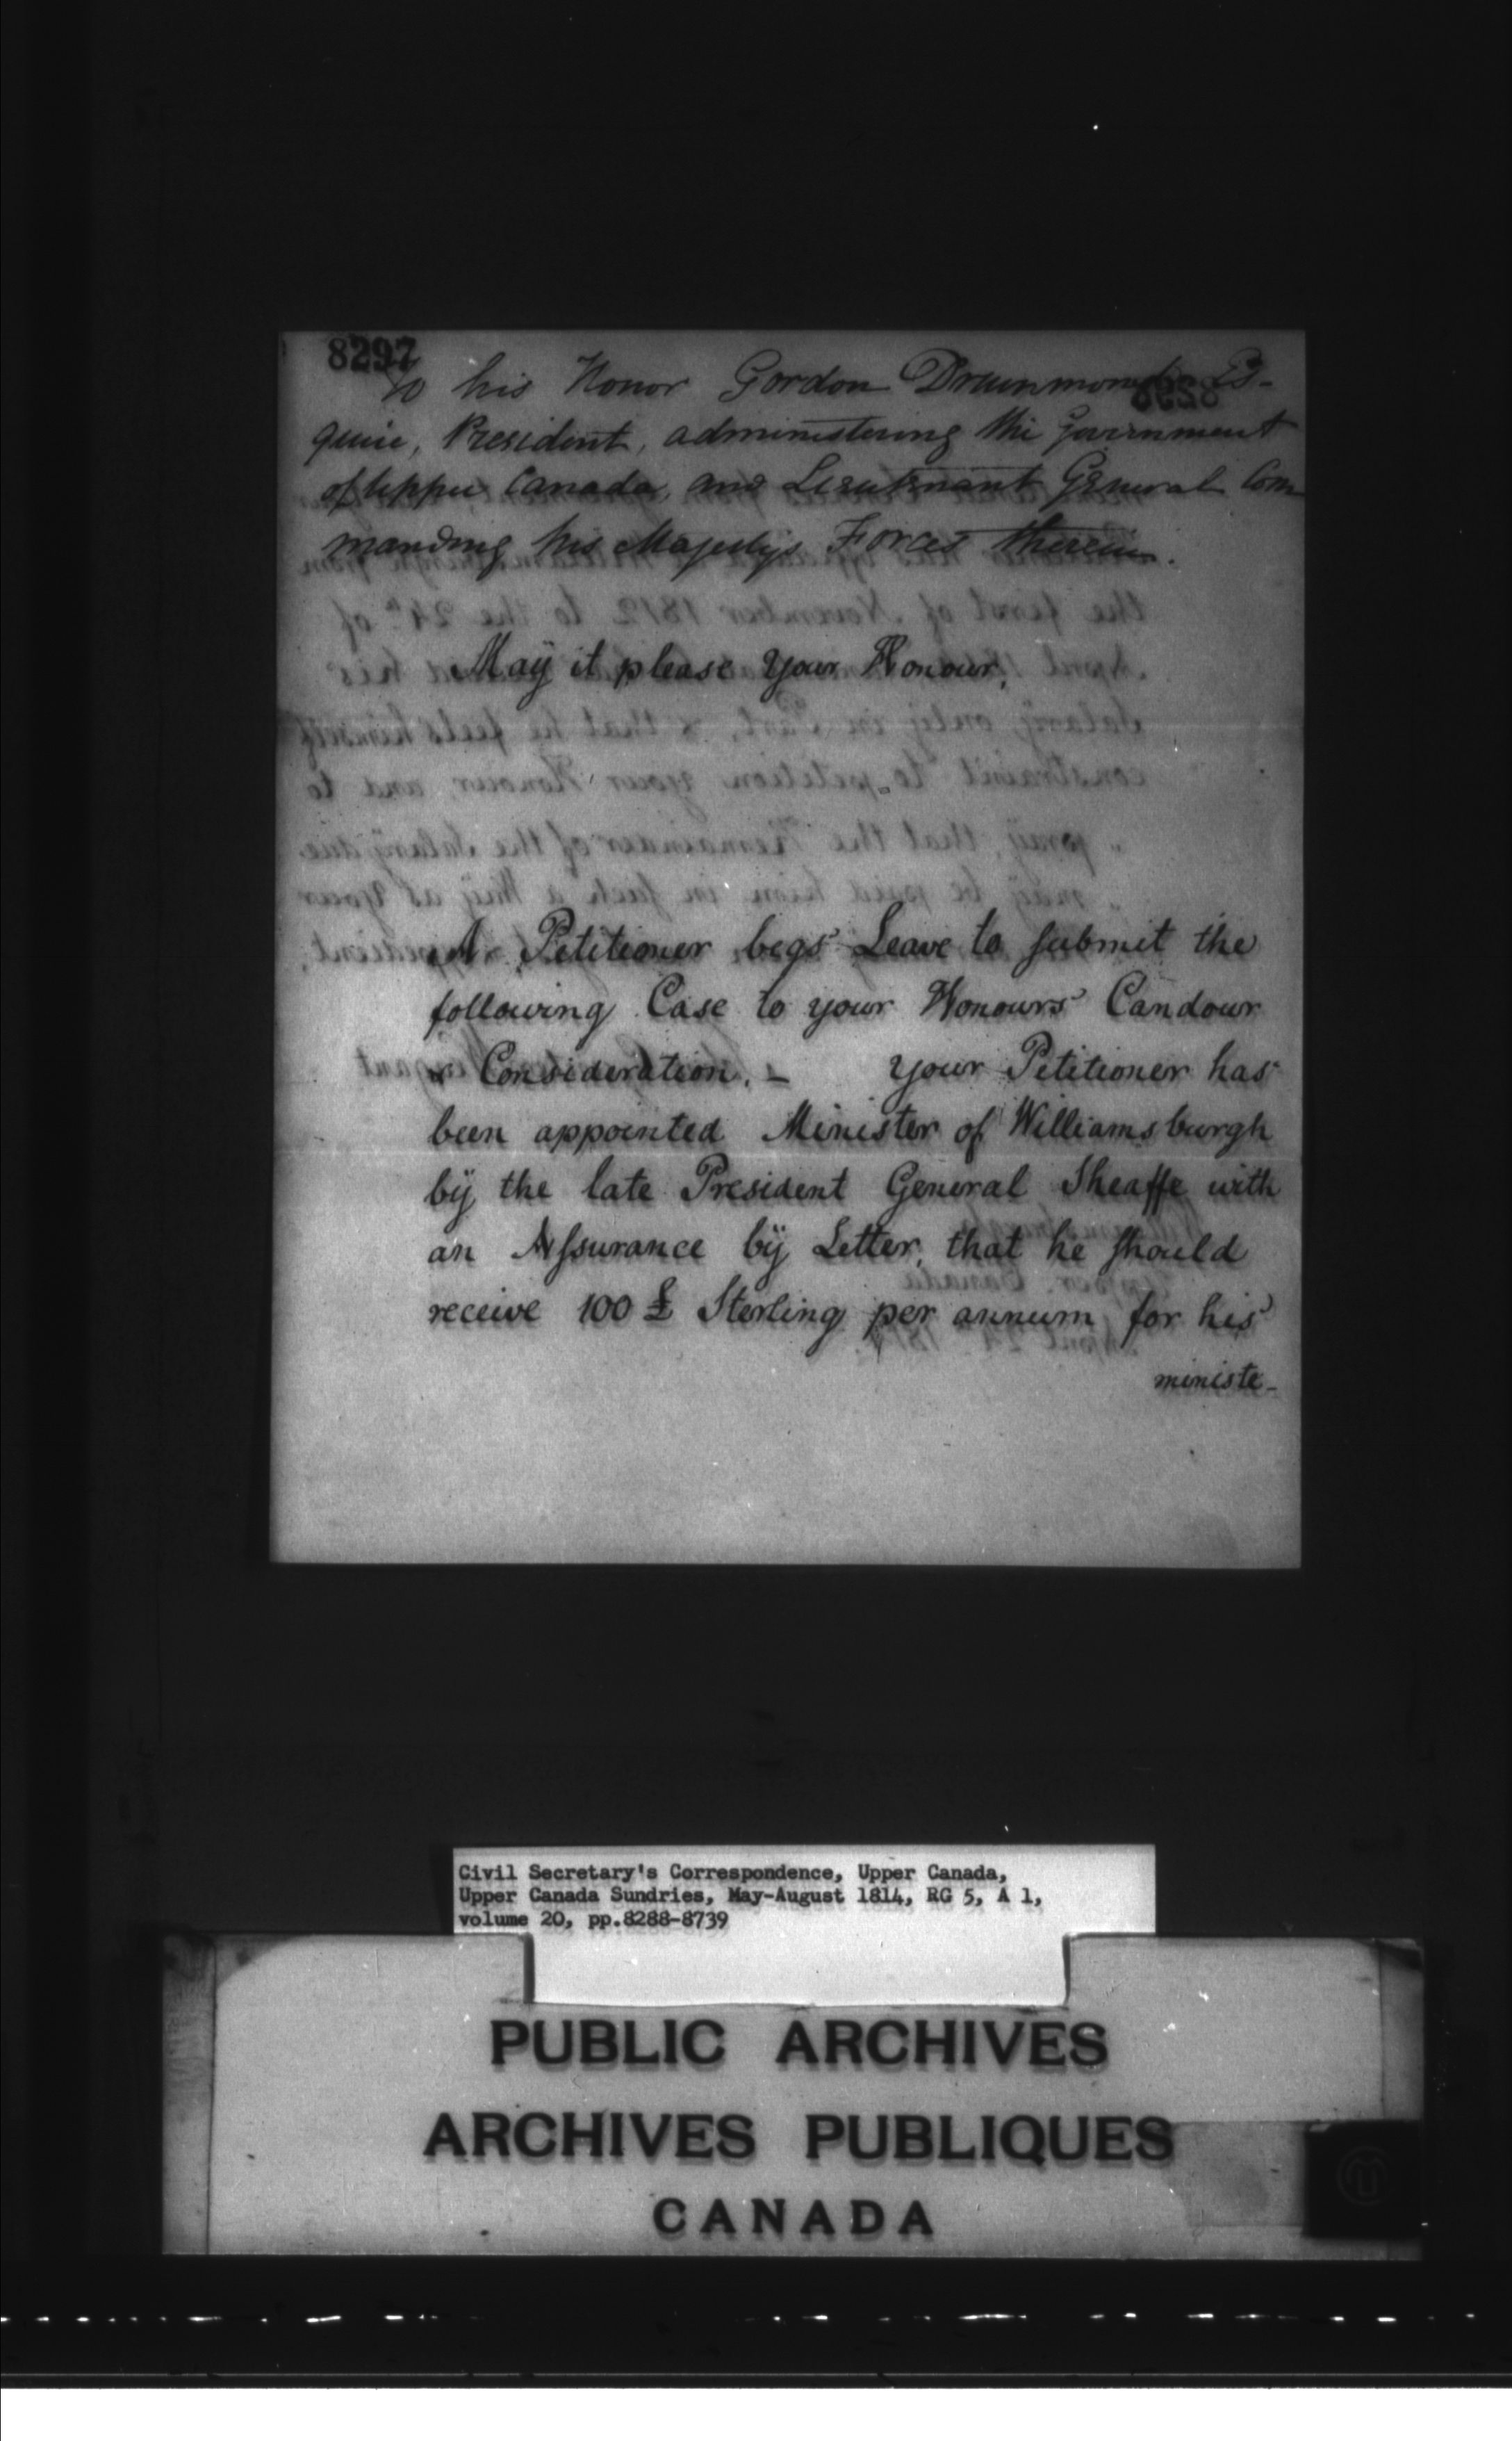 8297
To his Honor Gordon Drummond Es-
quire, President, administering the Government
of Upper Canada, and Lieutenant General Com
manding his Majestys Forces therein.
May it please your Honour,
A Petitioner begs Leave to submit the
following Case to your Honours Candour
& Consideration. – your Petitioner has
been appointed Minister of Williamsburgh
by the late President General Sheaffe with
an Assurance by Letter, that he should
receive 100 £ Sterling per annum for his
ministe-
Civil Secretary's Correspondence, Upper Canada,
Upper Canada Sundries, May-August 1814, RG 5, A 1,
volume 20, pp.8288-8739
PUBLIC ARCHIVES
ARCHIVES PUBLIQUES
CANADA